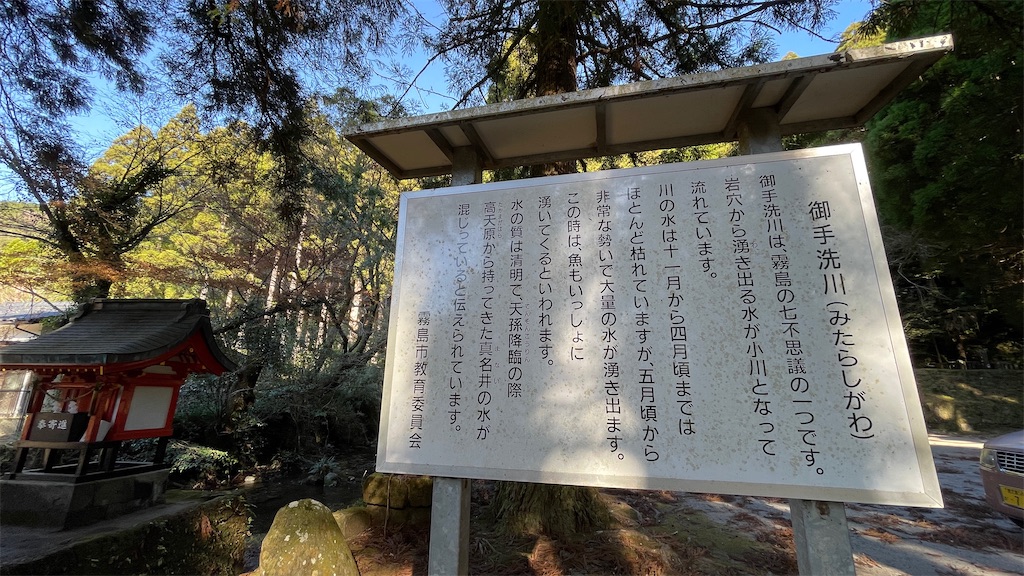 御手洗川(みたらしがわ)
御手洗川は、霧島の七不思議の一つです。
岩穴から湧き出る水が小川となって
流れています。
川の水は十一月から四月頃までは
ほとんど枯れていますが、五月頃から
非常な勢いで大量の水が湧き出ます。
この時は、魚もいっしょに
湧いてくるといわれます。
水の質は清明で、天孫降臨の際
高天原から持ってきた真名井の水が
混じっていると伝えられています。
霧島市教育委員会
奉寄進